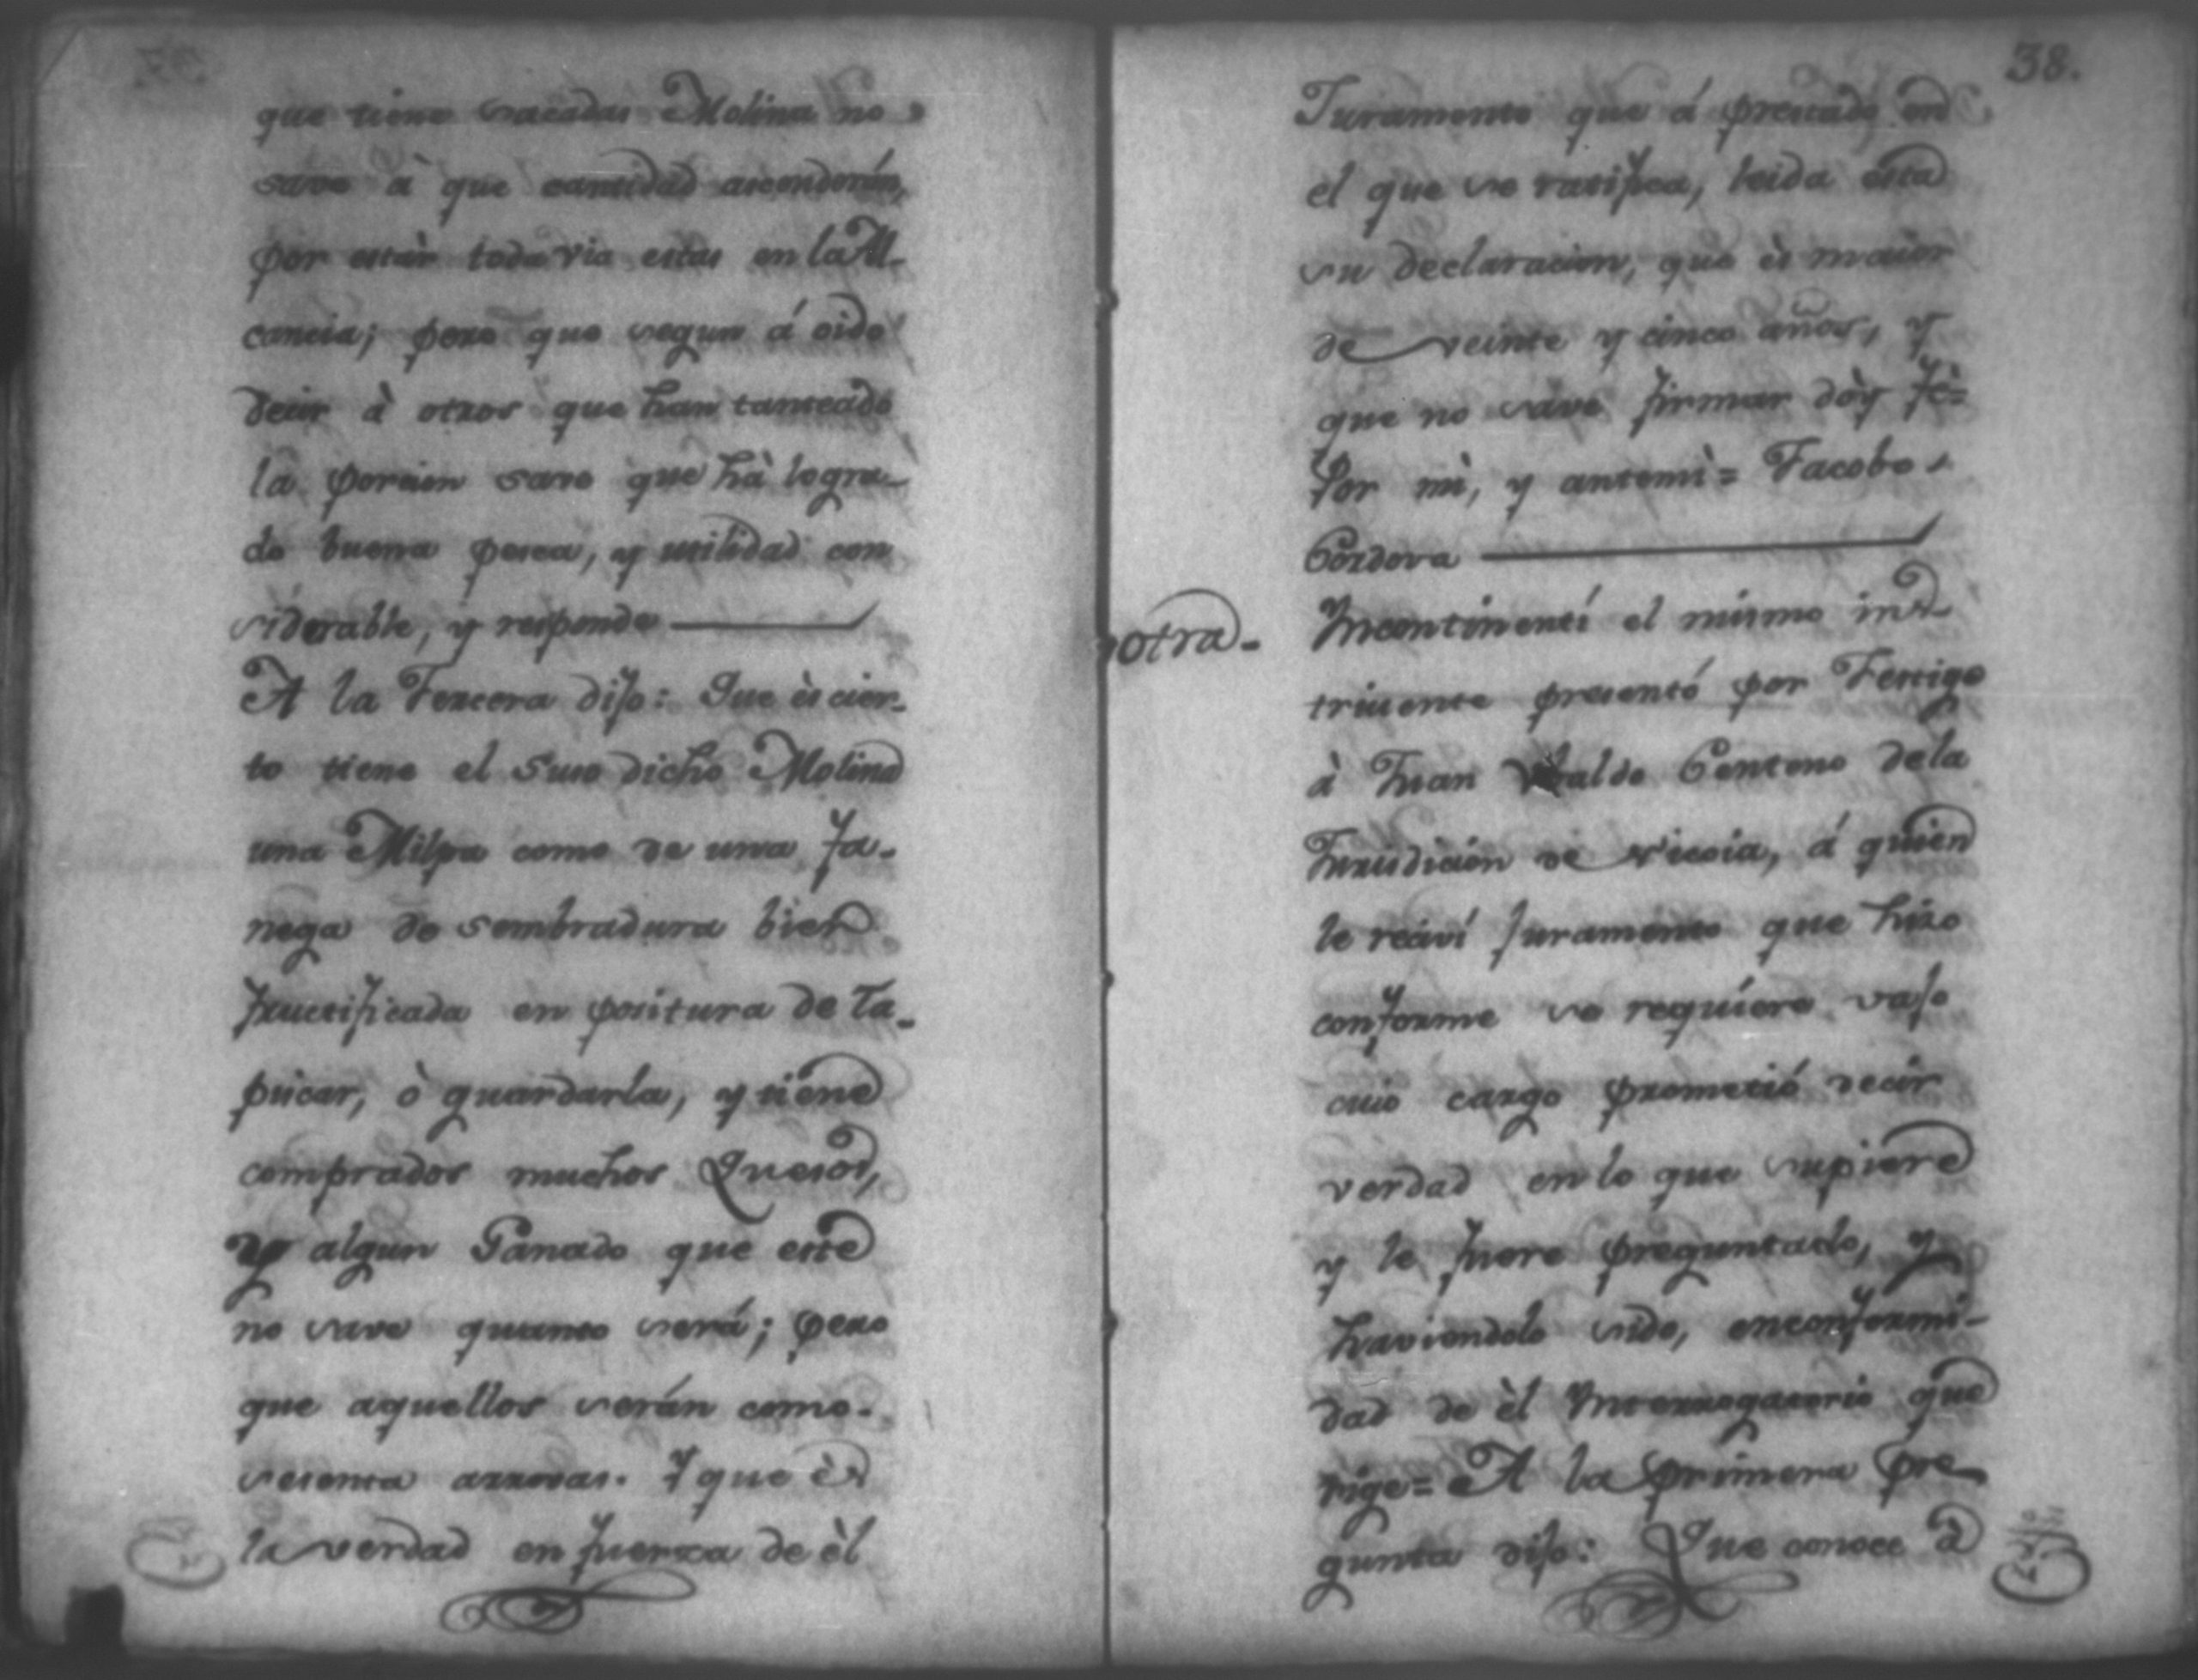 que tiene sacadas Molina no
save à que cantidad ascenderán,
por estàr toda via estas en la Al-
cancia; pero que segun á oido
decir à otros que han tanteado
la porcion save que hà logra-
do buena pesca, y utilidad con
siderable, y responde
A la Tercera dijo: Que ès cier-
to tiene el Suso dicho Molina
una Milpa como de una fa-
nega de sembradura bien
fructificada en positura de ta-
piscar, ò guardarla, y tiene
comprados muchos Quesos,
y algun Ganado que este
no save quanto será; pero
que aquellos serán como
sesenta arrovas. Y que ès
la verdad en fuerza de èl
38.
Juramento que á prestado en
el que se ratifica, leida esta
su declaracion, que ès maior
de veinte y cinco años, y
que no save firmar dòy fè=
Por mì, y antemì= Jacobo
Córdova
otra-
Yncontinentí el mismo ins-
truiente presentó por Testigo
à Juan Vbaldo Centeno dela
Jurisdicion de Nicoia, á quien
le reciví juramento que hizo
conforme se requiere vajo
cuio cargo prometió decir
verdad en lo que supiere
y le fuere preguntado, y
haviendolo sido, enconformi-
dad de èl Ynterrogatorio que
rige= A la primera pre-
gunta dijo: Que conoce à